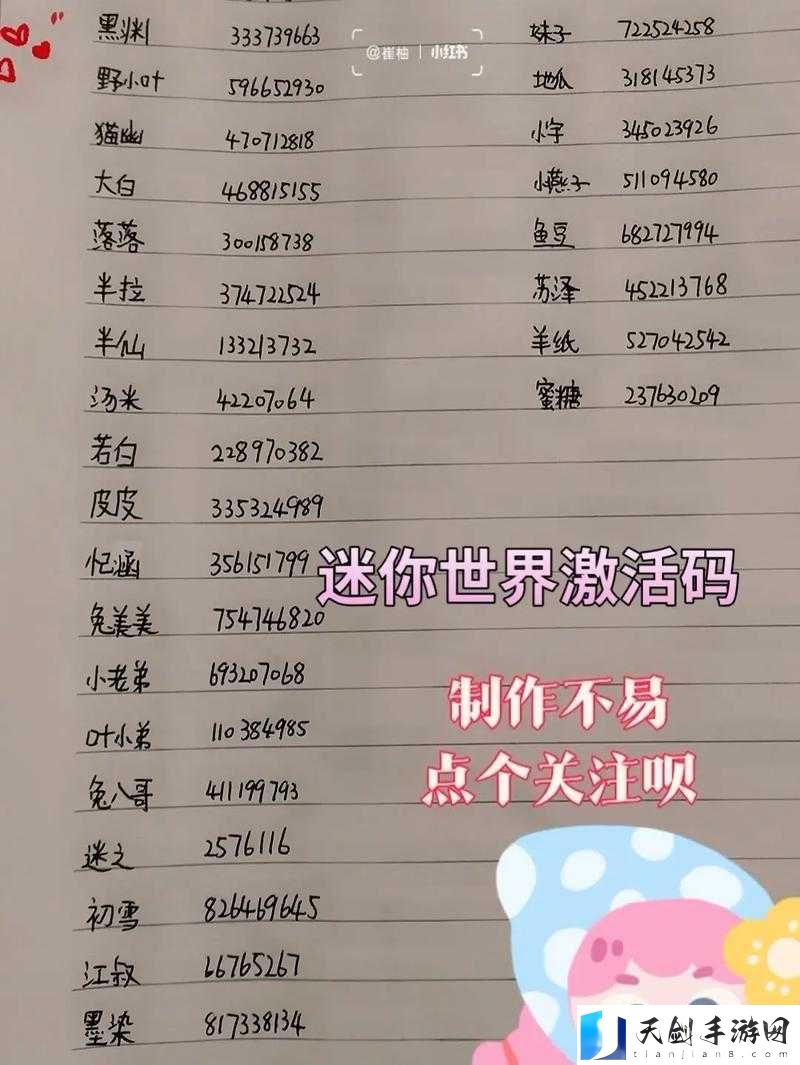 黑渊 333739663
野小叶 596652930
猫幽 470712818
大白 468815155
落落 300158738
半拉 374722524
半仙 133213732
汤米 42207064
若白 228970382
皮皮 335324989
忆涵 356151799
兔美美 754746820
小老弟 693207068
叶小弟 110384985
兔八哥 411199793
迷之 2576116
初雪 826469645
江叔 66765267
墨染 817338134
@崔柚 | 小红书
妹子 722524258
地瓜 318145373
小字 345023926
小燕子 511094580
鱼豆 682727994
苏泽 452213768
羊纸 527042542
蜜糖 237630209
迷你世界激活码
制作不易
点个关注呗
天剑手游网
tianjian8.com